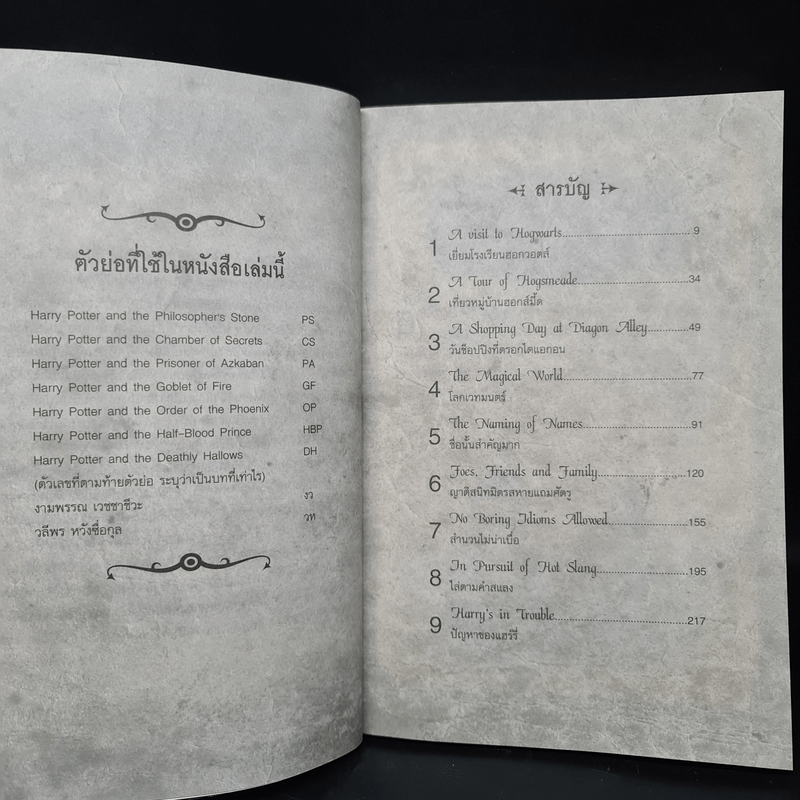 ตัวย่อที่ใช้ในหนังสือเล่มนี้
Harry Potter and the Philosopher's Stone PS
Harry Potter and the Chamber of Secrets CS
Harry Potter and the Prisoner of Azkaban PA
Harry Potter and the Goblet of Fire GF
Harry Potter and the Order of the Phoenix OP
Harry Potter and the Half-Blood Prince HBP
Harry Potter and the Deathly Hallows DH
(ตัวเลขที่ตามท้ายตัวย่อ ระบุว่าเป็นบทที่เท่าไร)
งามพรรณ เวชชาชีวะ งว
วลีพร หวังซื่อกุล วท
สารบัญ
1 A visit to Hogwarts 9
เยี่ยมโรงเรียนฮอกวอตส์
2 A Tour of Hogsmeade 34
เที่ยวหมู่บ้านฮอกส์มี้ด
3 A Shopping Day at Diagon Alley 49
วันช็อปปิงที่ตรอกไดแอกอน
4 The Magical World 77
โลกเวทมนตร์
5 The Naming of Names 91
ชื่อนั้นสำคัญมาก
6 Foes, Friends and Family 120
ญาติสนิทมิตรสหายแถมศัตรู
7 No Boring Idioms Allowed 155
สำนวนไม่น่าเบื่อ
8 In Pursuit of Hot Slang 195
ไล่ตามคำสแลง
9 Harry's in Trouble 217
ปัญหาของแฮร์รี่